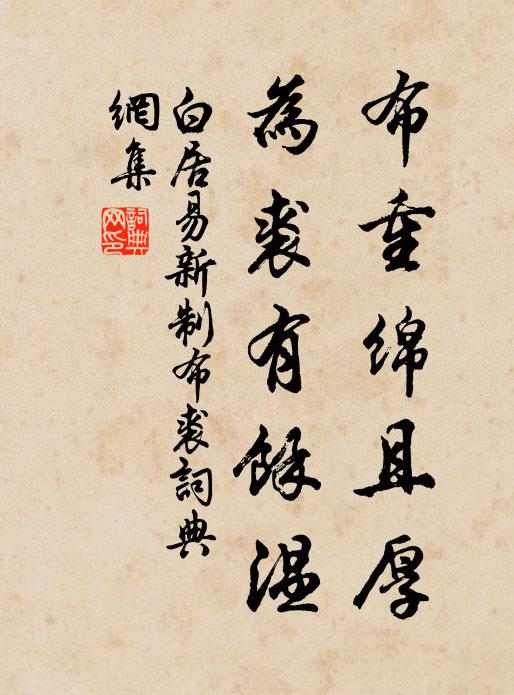 布重綿且厚
為裘有餘溫
白居易新制布裘詞典
網集
詞典
网印